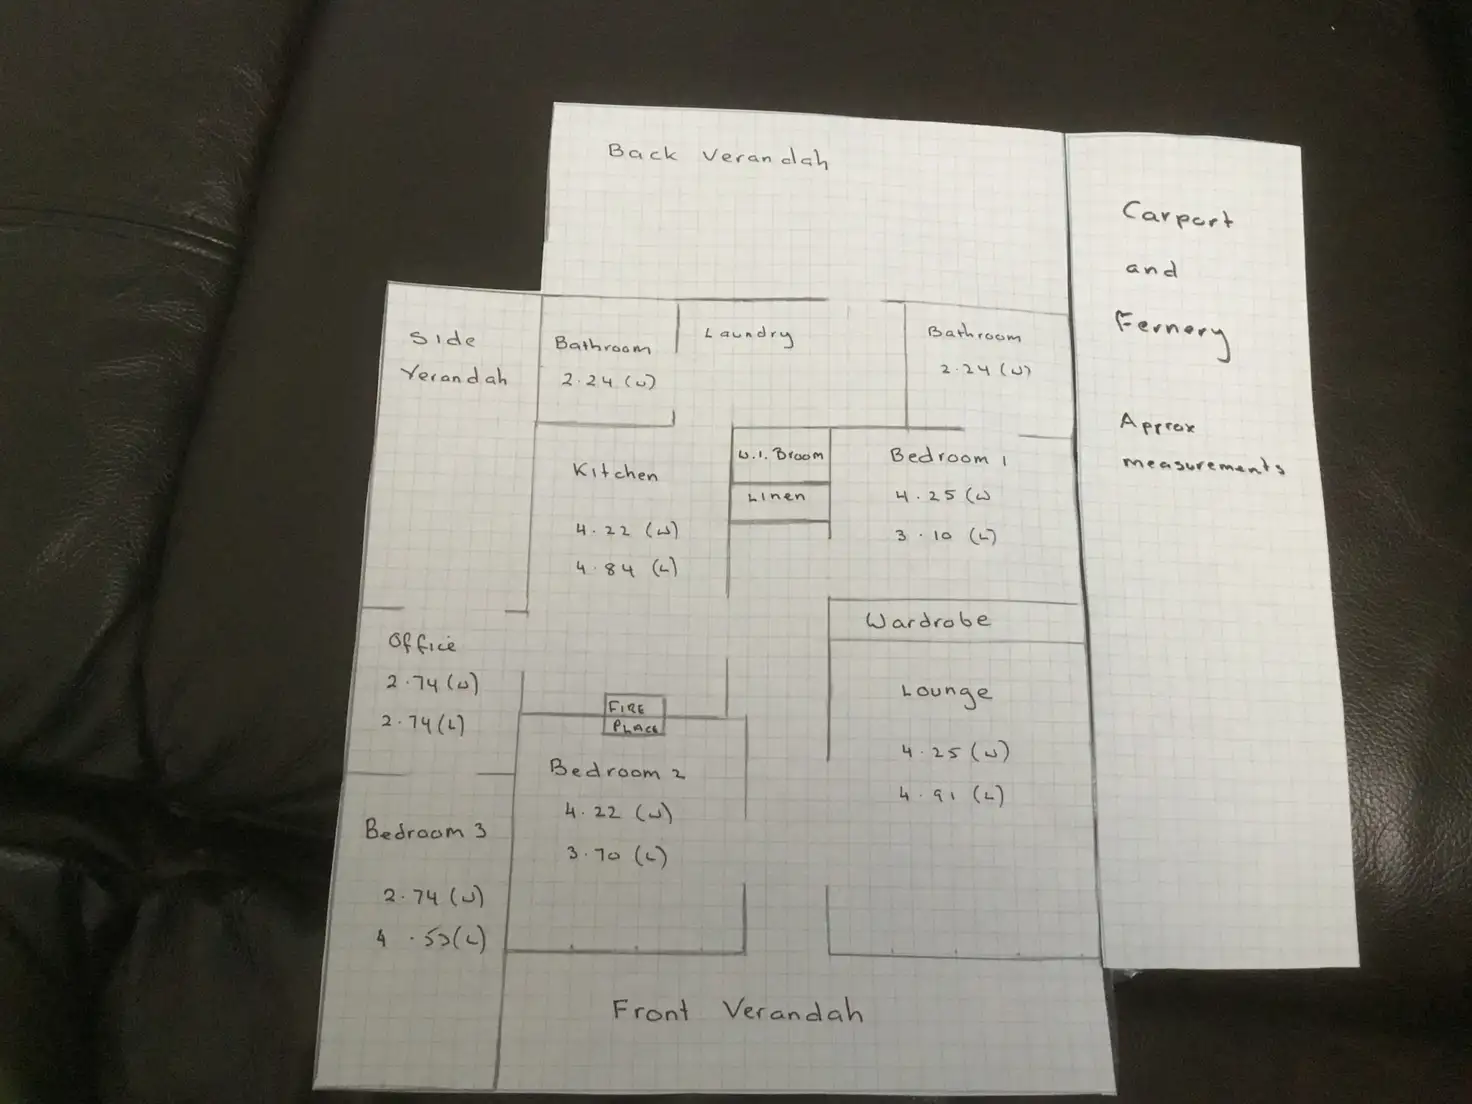 Back Verandah
Carport
and
Fernery
Approx
measurements
Side
Verandah
Bathroom
2.24 (W)
Laundry
Bathroom
2.24 (W)
Kitchen
4.22 (W)
4.84 (L)
W.I. Broom
Linen
Bedroom 1
4.25 (W
3.10 (L)
Wardrobe
Office
2.74 (W)
2.74 (L)
FIRE
PLACE
Lounge
4.25 (W)
4.91 (L)
Bedroom 2
4.22 (W)
3.70 (L)
Bedroom 3
2.74 (W)
Front Verandah